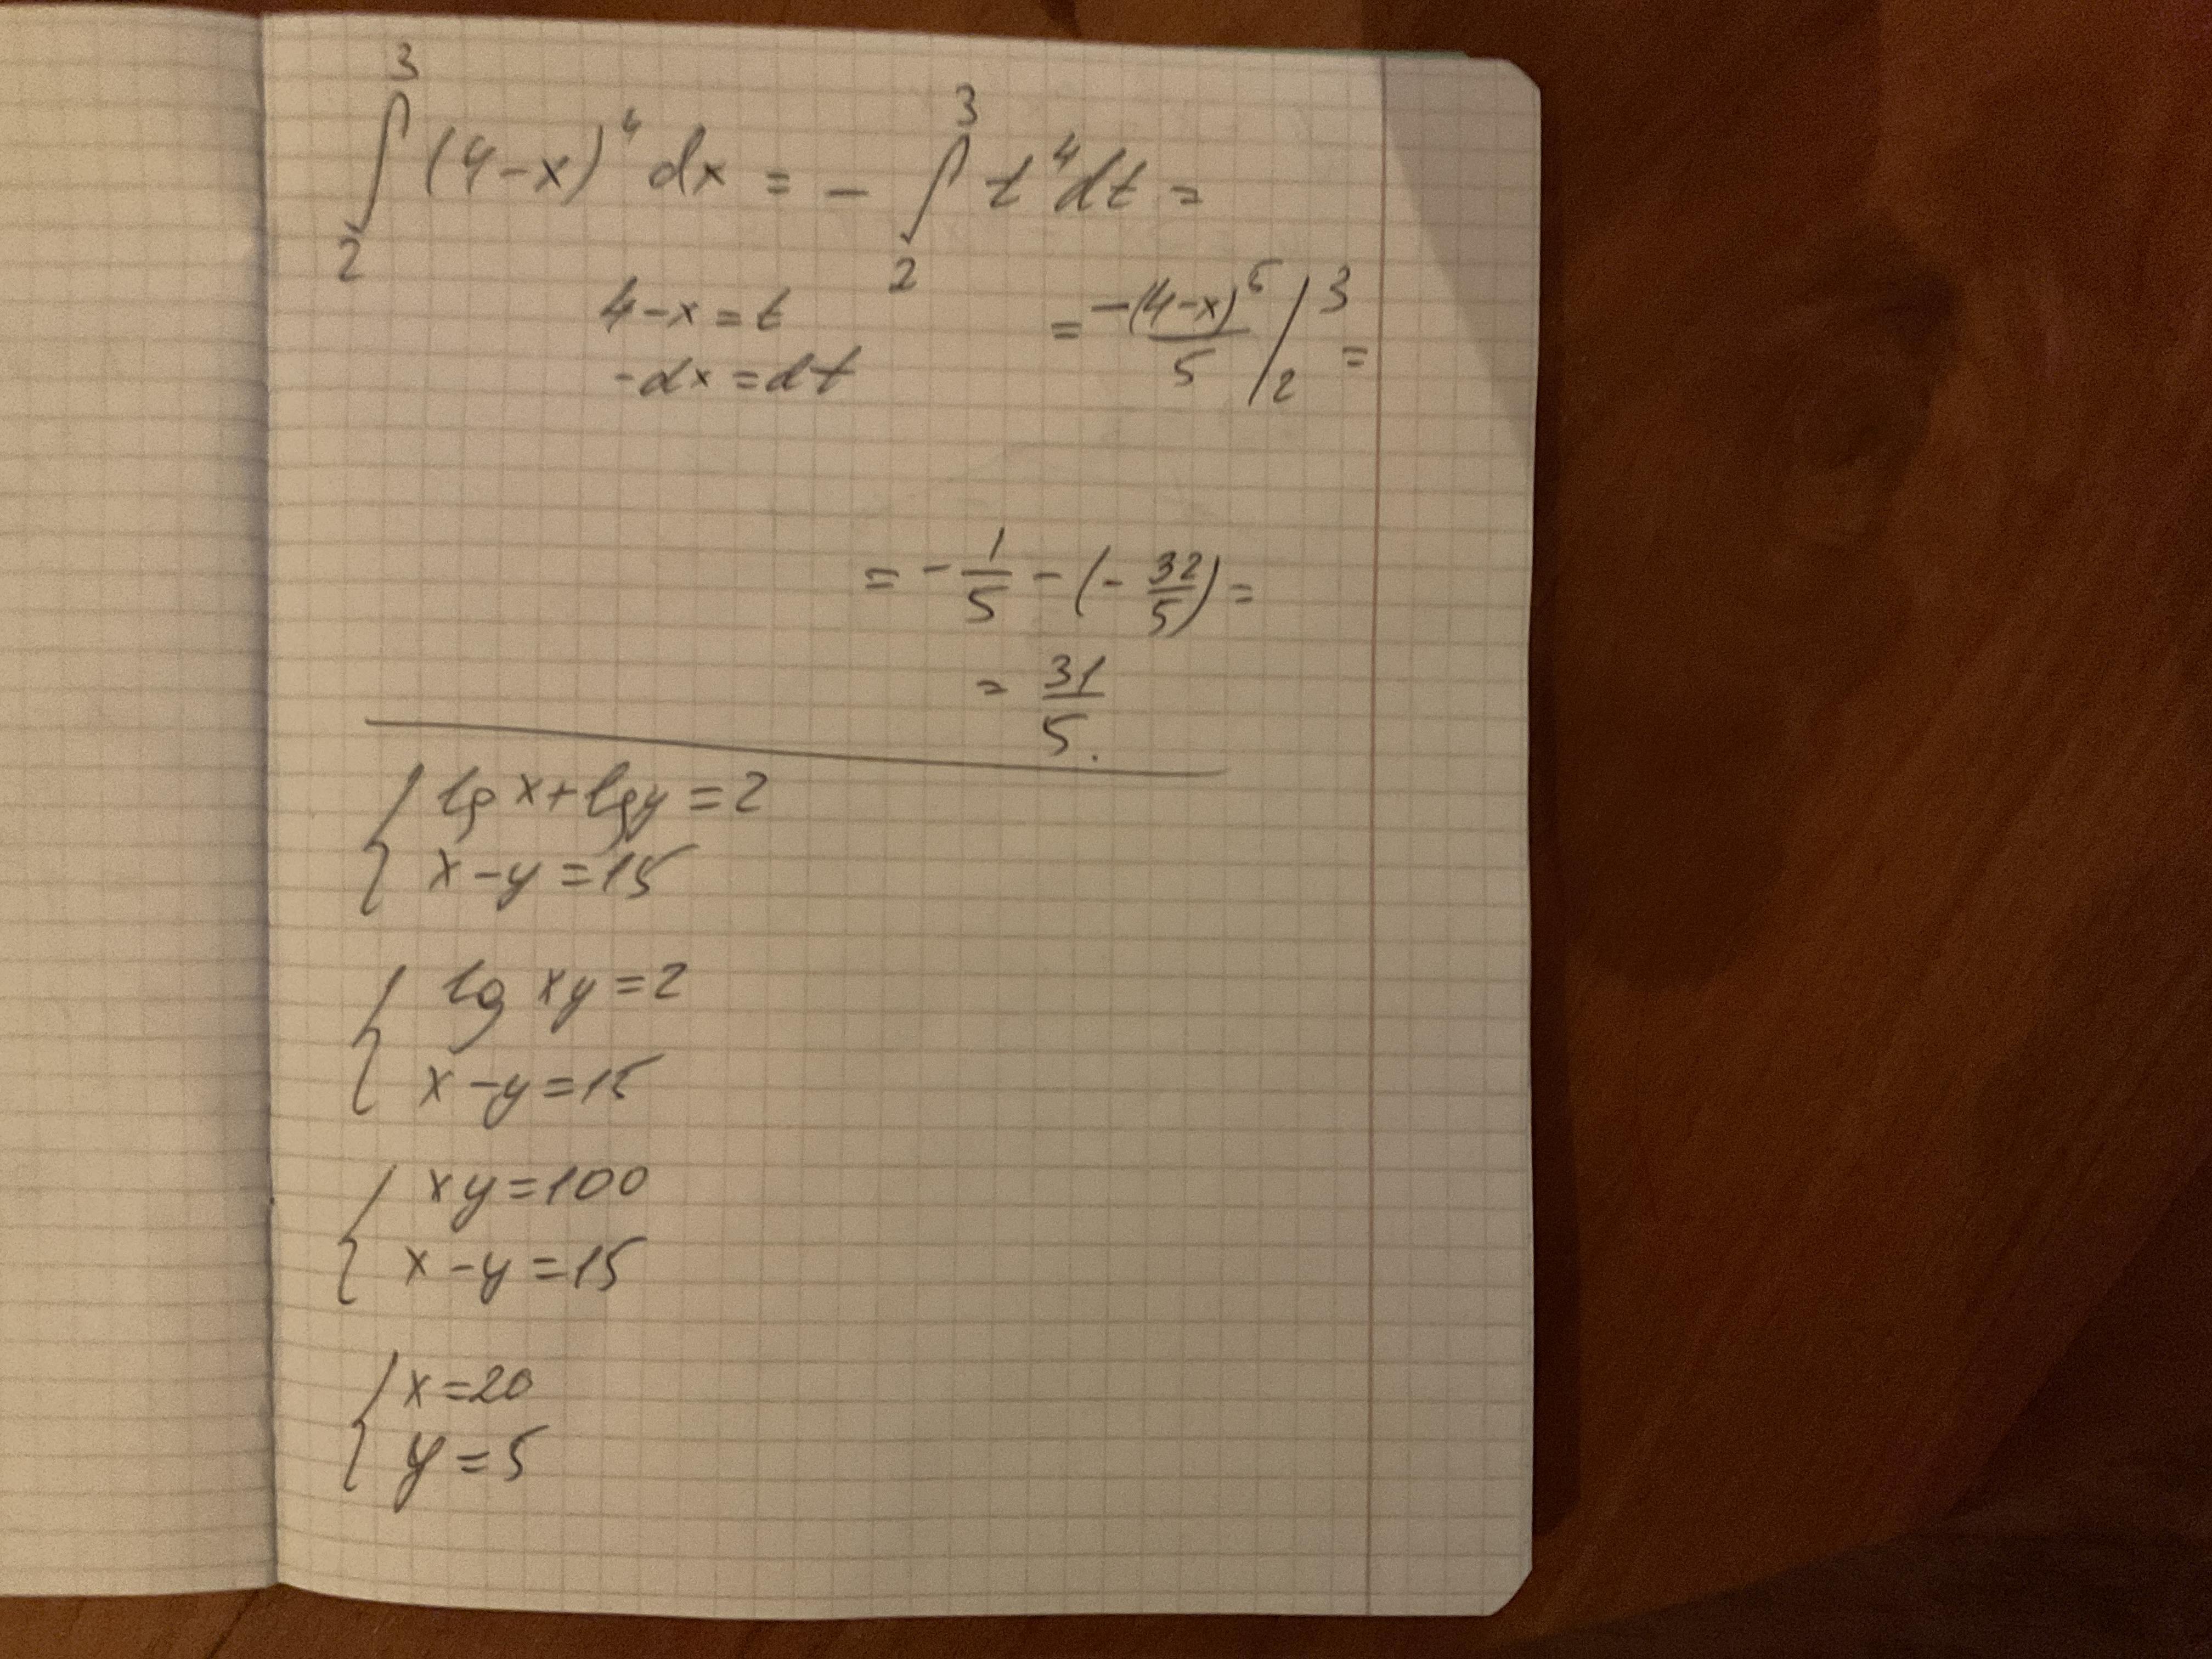 ∫₂³ (4-x)⁴ dx = - ∫₂³ t⁴ dt =
4-x = t
-dx = dt
= -(4-x)⁵/5 /₂³ =
= - 1/5 - (- 32/5) =
= 31/5.
{ lg x + lg y = 2
x - y = 15
{ lg xy = 2
x - y = 15
{ xy = 100
x - y = 15
{ x = 20
y = 5